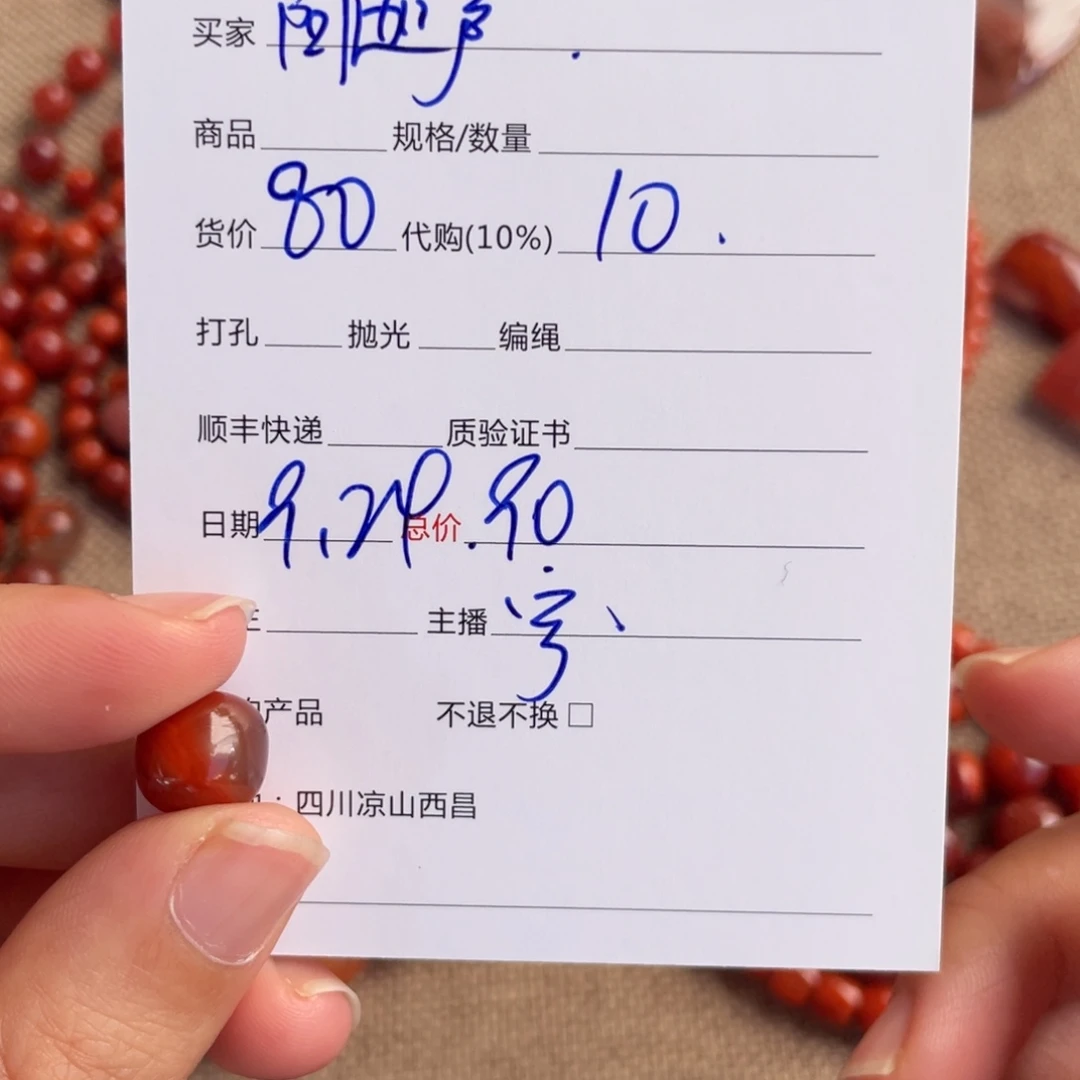 买家
商品 规格/数量
货价 80 代购(10%) 10.
打孔 抛光 编绳
顺丰快递 质验证书
日期 9.29 总价 .90
主播
产品 不退不换□
：四川凉山西昌